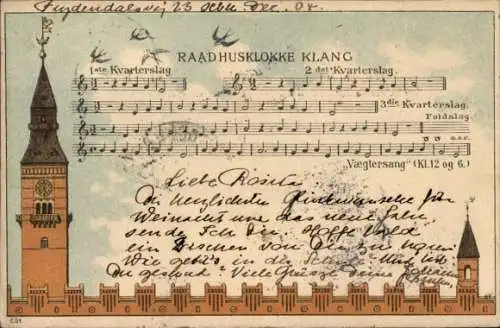 23 Dec. 04.
RAADHUSKLOKKE KLANG
1ste Kvarterslag
2det Kvarterslag.
3die Kvarterslag.
Fuldslag.
o.s.v.
„Vægtersang" (Kl.12 og 6.)
Liebe Rosita
Die herzlichste Glückwünsche für
Weihnacht und das neue Jahr,
sende Ich Dir. Hoffe bald
ein Bischen von Dir zu
Wie geht's in der Schule? Und bist
Du gesund? Viele Grüsse